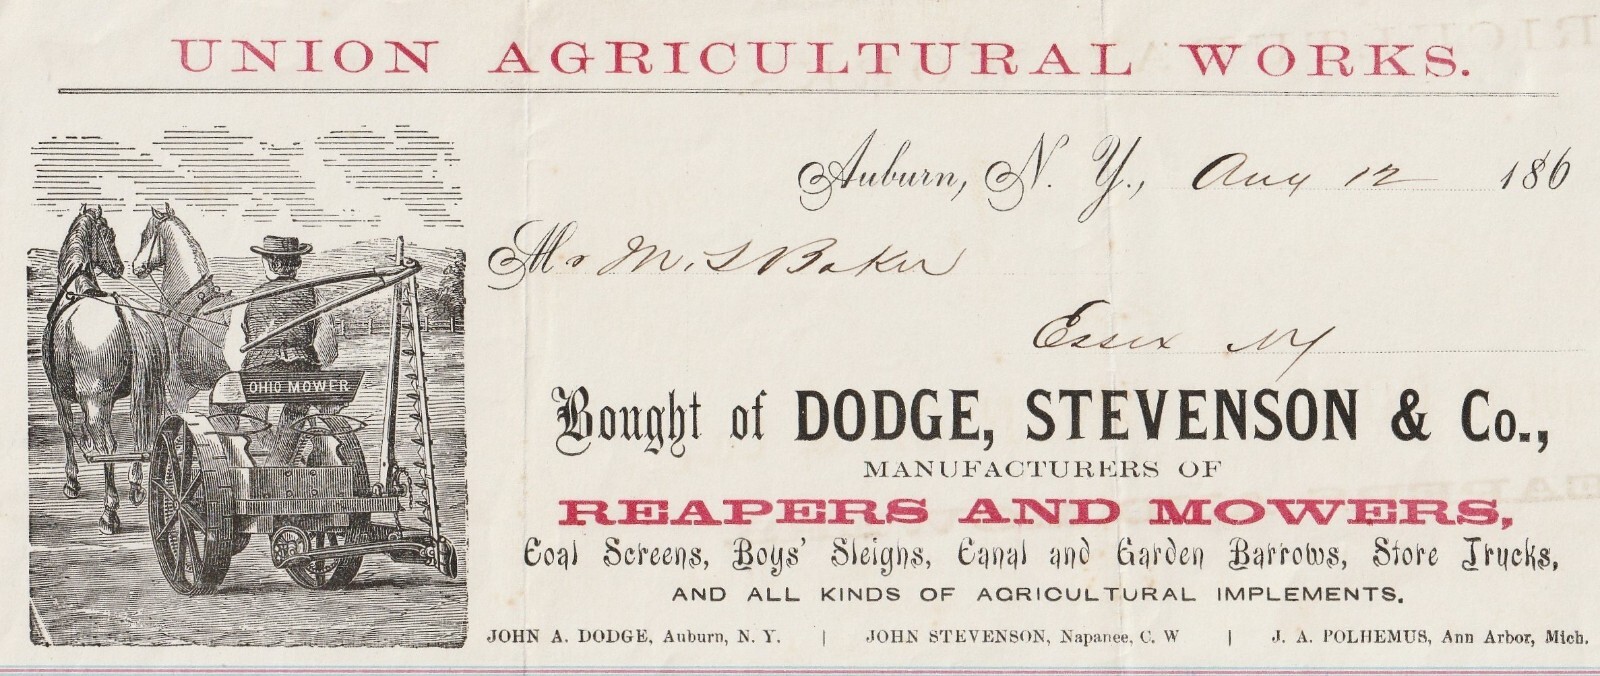 UNION AGRICULTURAL WORKS.
Auburn, N. Y., Aug 12 186
Mr M. S Baker
Essex NY
OHIO MOWER
Bought of DODGE, STEVENSON & Co.,
MANUFACTURERS OF
REAPERS AND MOWERS,
Coal Screens, Boys' Sleighs, Canal and Garden Barrows, Store Trucks,
AND ALL KINDS OF AGRICULTURAL IMPLEMENTS.
JOHN A. DODGE, Auburn, N. Y. | JOHN STEVENSON, Napanee, C. W | J. A. POLHEMUS, Ann Arbor, Mich.